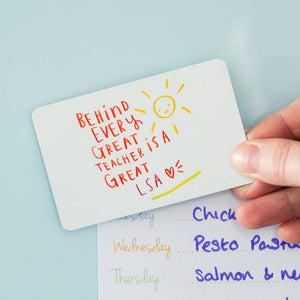 BEHIND
EVERY
GREAT
TEACHER IS A
GREAT
LSA
Chick
Wednesday Pesto
Thursday Salmon &